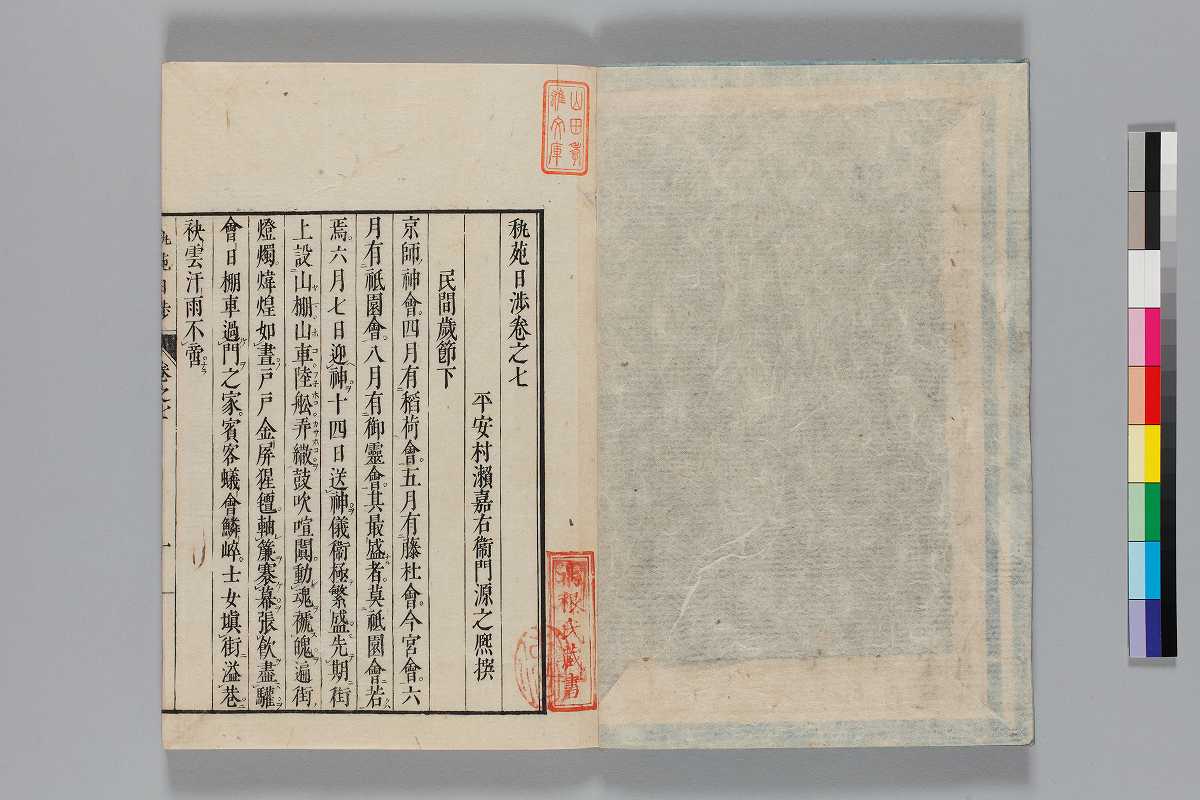 秇苑日渉卷之七
平安村瀬嘉右衞門源之熈撰
民間歳節下
京師神會。四月有稻荷會。五月有藤杜會。今宮會。六
月有祇園會。八月有御靈會。其最盛者。莫祇園會若
焉。六月七日迎神。十四日送神。儀衞極繁盛。先期街
上設山棚山車陸舩弄繖。鼓吹喧闐。動魂褫魄。遍街
燈燭。煒煌如晝。戸戸金屏猩氊。軸簾褰幕。張飮盡驩。
會日棚車過門之家。賓客蟻會鱗崪。士女塡街溢巷。
袂雲汗雨不啻
秇苑日渉
卷之七
一
山田孝
雄文庫
氏藏書